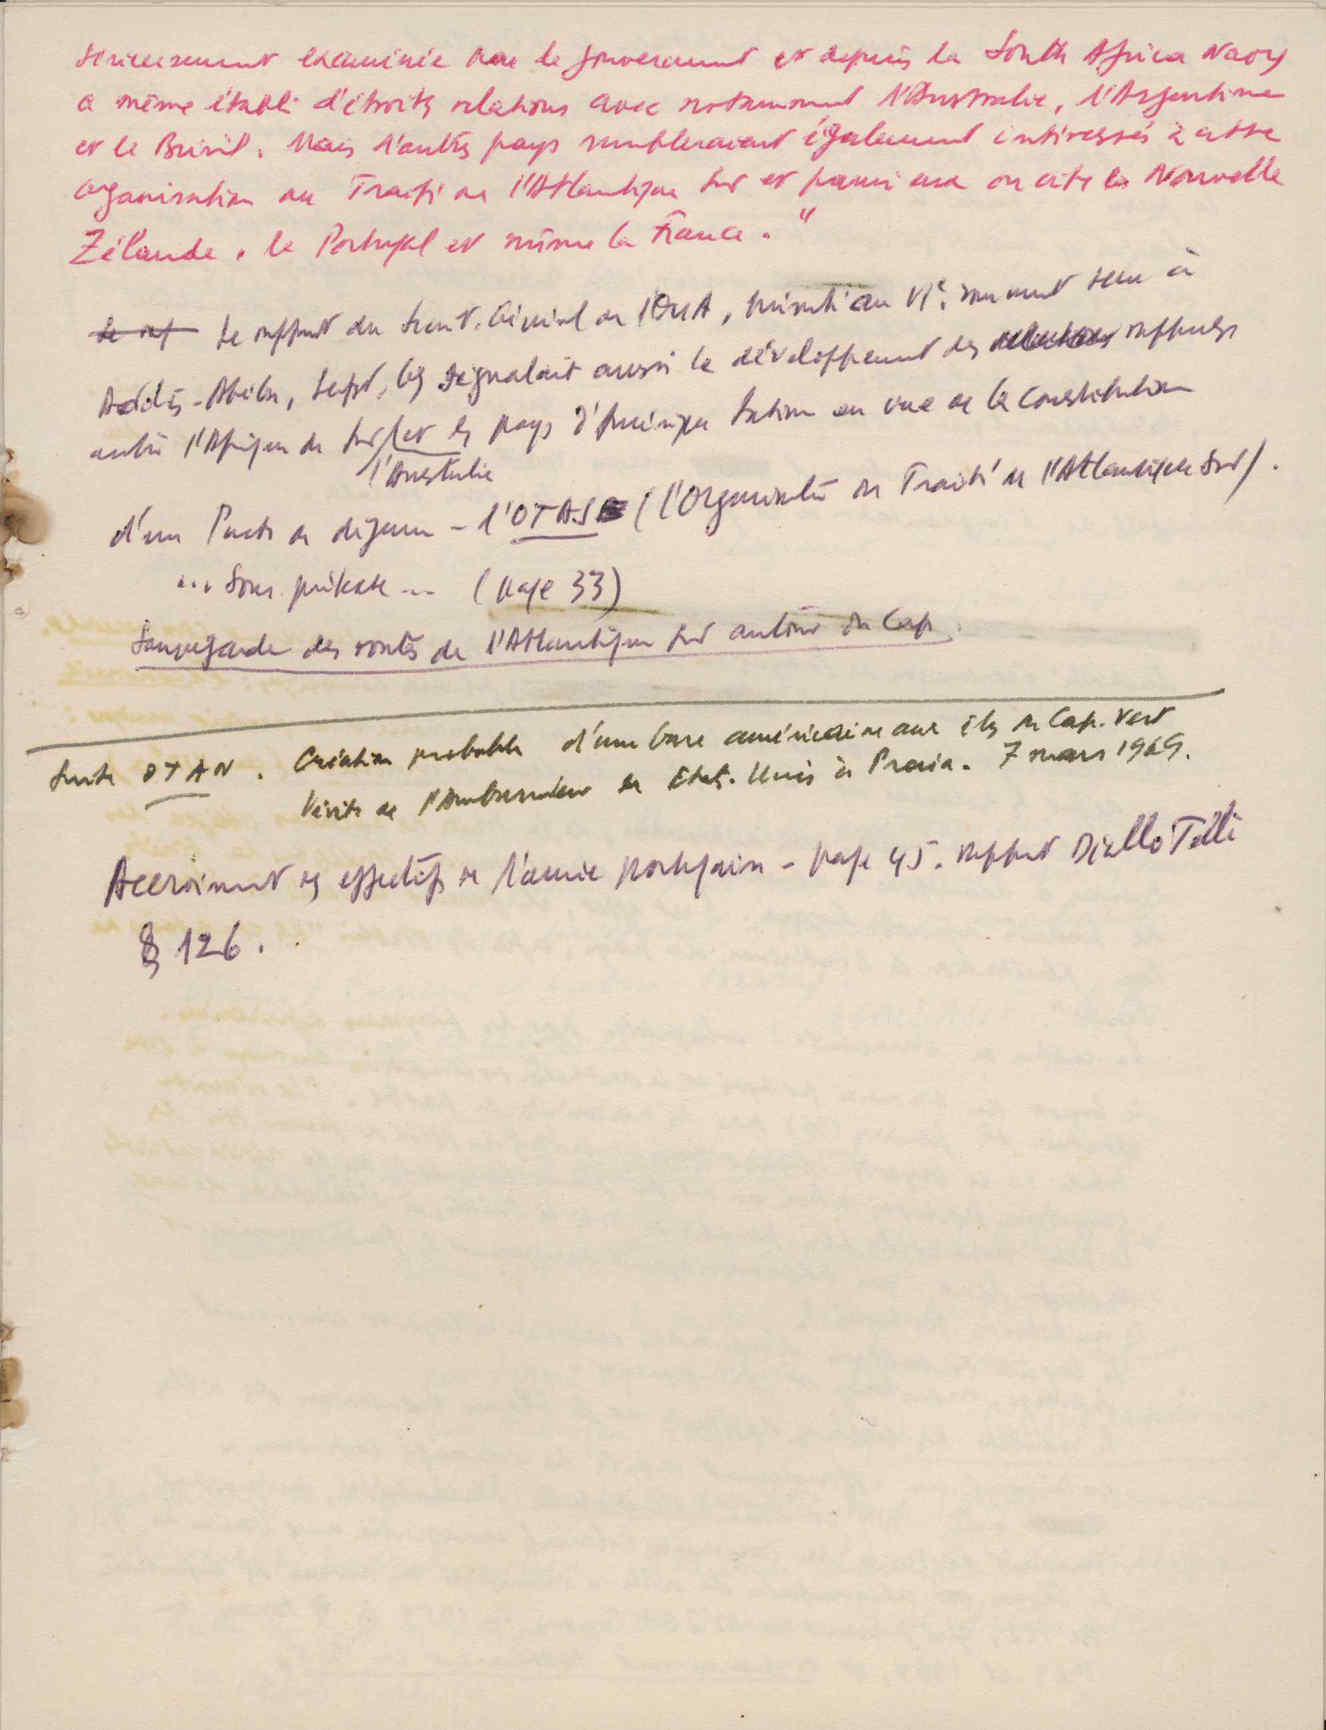 sérieusement examinée par le gouvernement et depuis la South Africa Navy
a même établi d'étroits relations avec notamment l'Australie, l'Argentine
et le Brésil. Mais d'autres pays sembleraient également intéressés à cette
organisation du Traité de l'Atlantique Sud et parmi eux on cite la Nouvelle
Zélande, le Portugal et même la France."
Le rap Le rapport du Secrét. Général de l'OUA, présenté au VIe sommet tenu à
Addis-Abéba, Sept. 69 signalait aussi le développement des relations rapports
entre l'Afrique du Sud et les pays d'Amérique Latine en vue de la constitution
l'Australie
d'un Pacte de défense - l'OTAS (l'Organisation du Traité de l'Atlantique Sud).
... Sous prétexte ... (page 33)
Sauvegarde des routes de l'Atlantique Sud autour du Cap.
Suite OTAN. Création probable d'une base américaine aux îles du Cap-Vert
Visite de l'Ambassadeur des Etats-Unis à Praia. 7 mars 1969.
Accroissement des effectifs de l'armée portugaise - page 45. rapport Diallo Telli
§ 126.